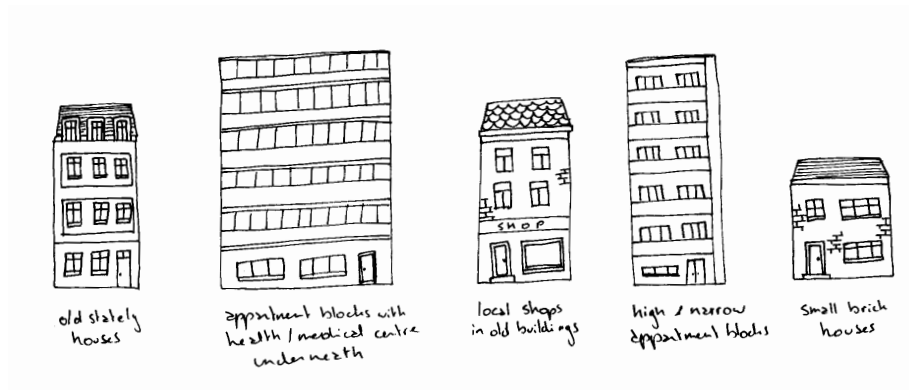 SHOP
old stately
houses
appartment blocks with
health/medical centre
underneath
local shops
in old buildings
high & narrow
appartment blocks
small brick
houses